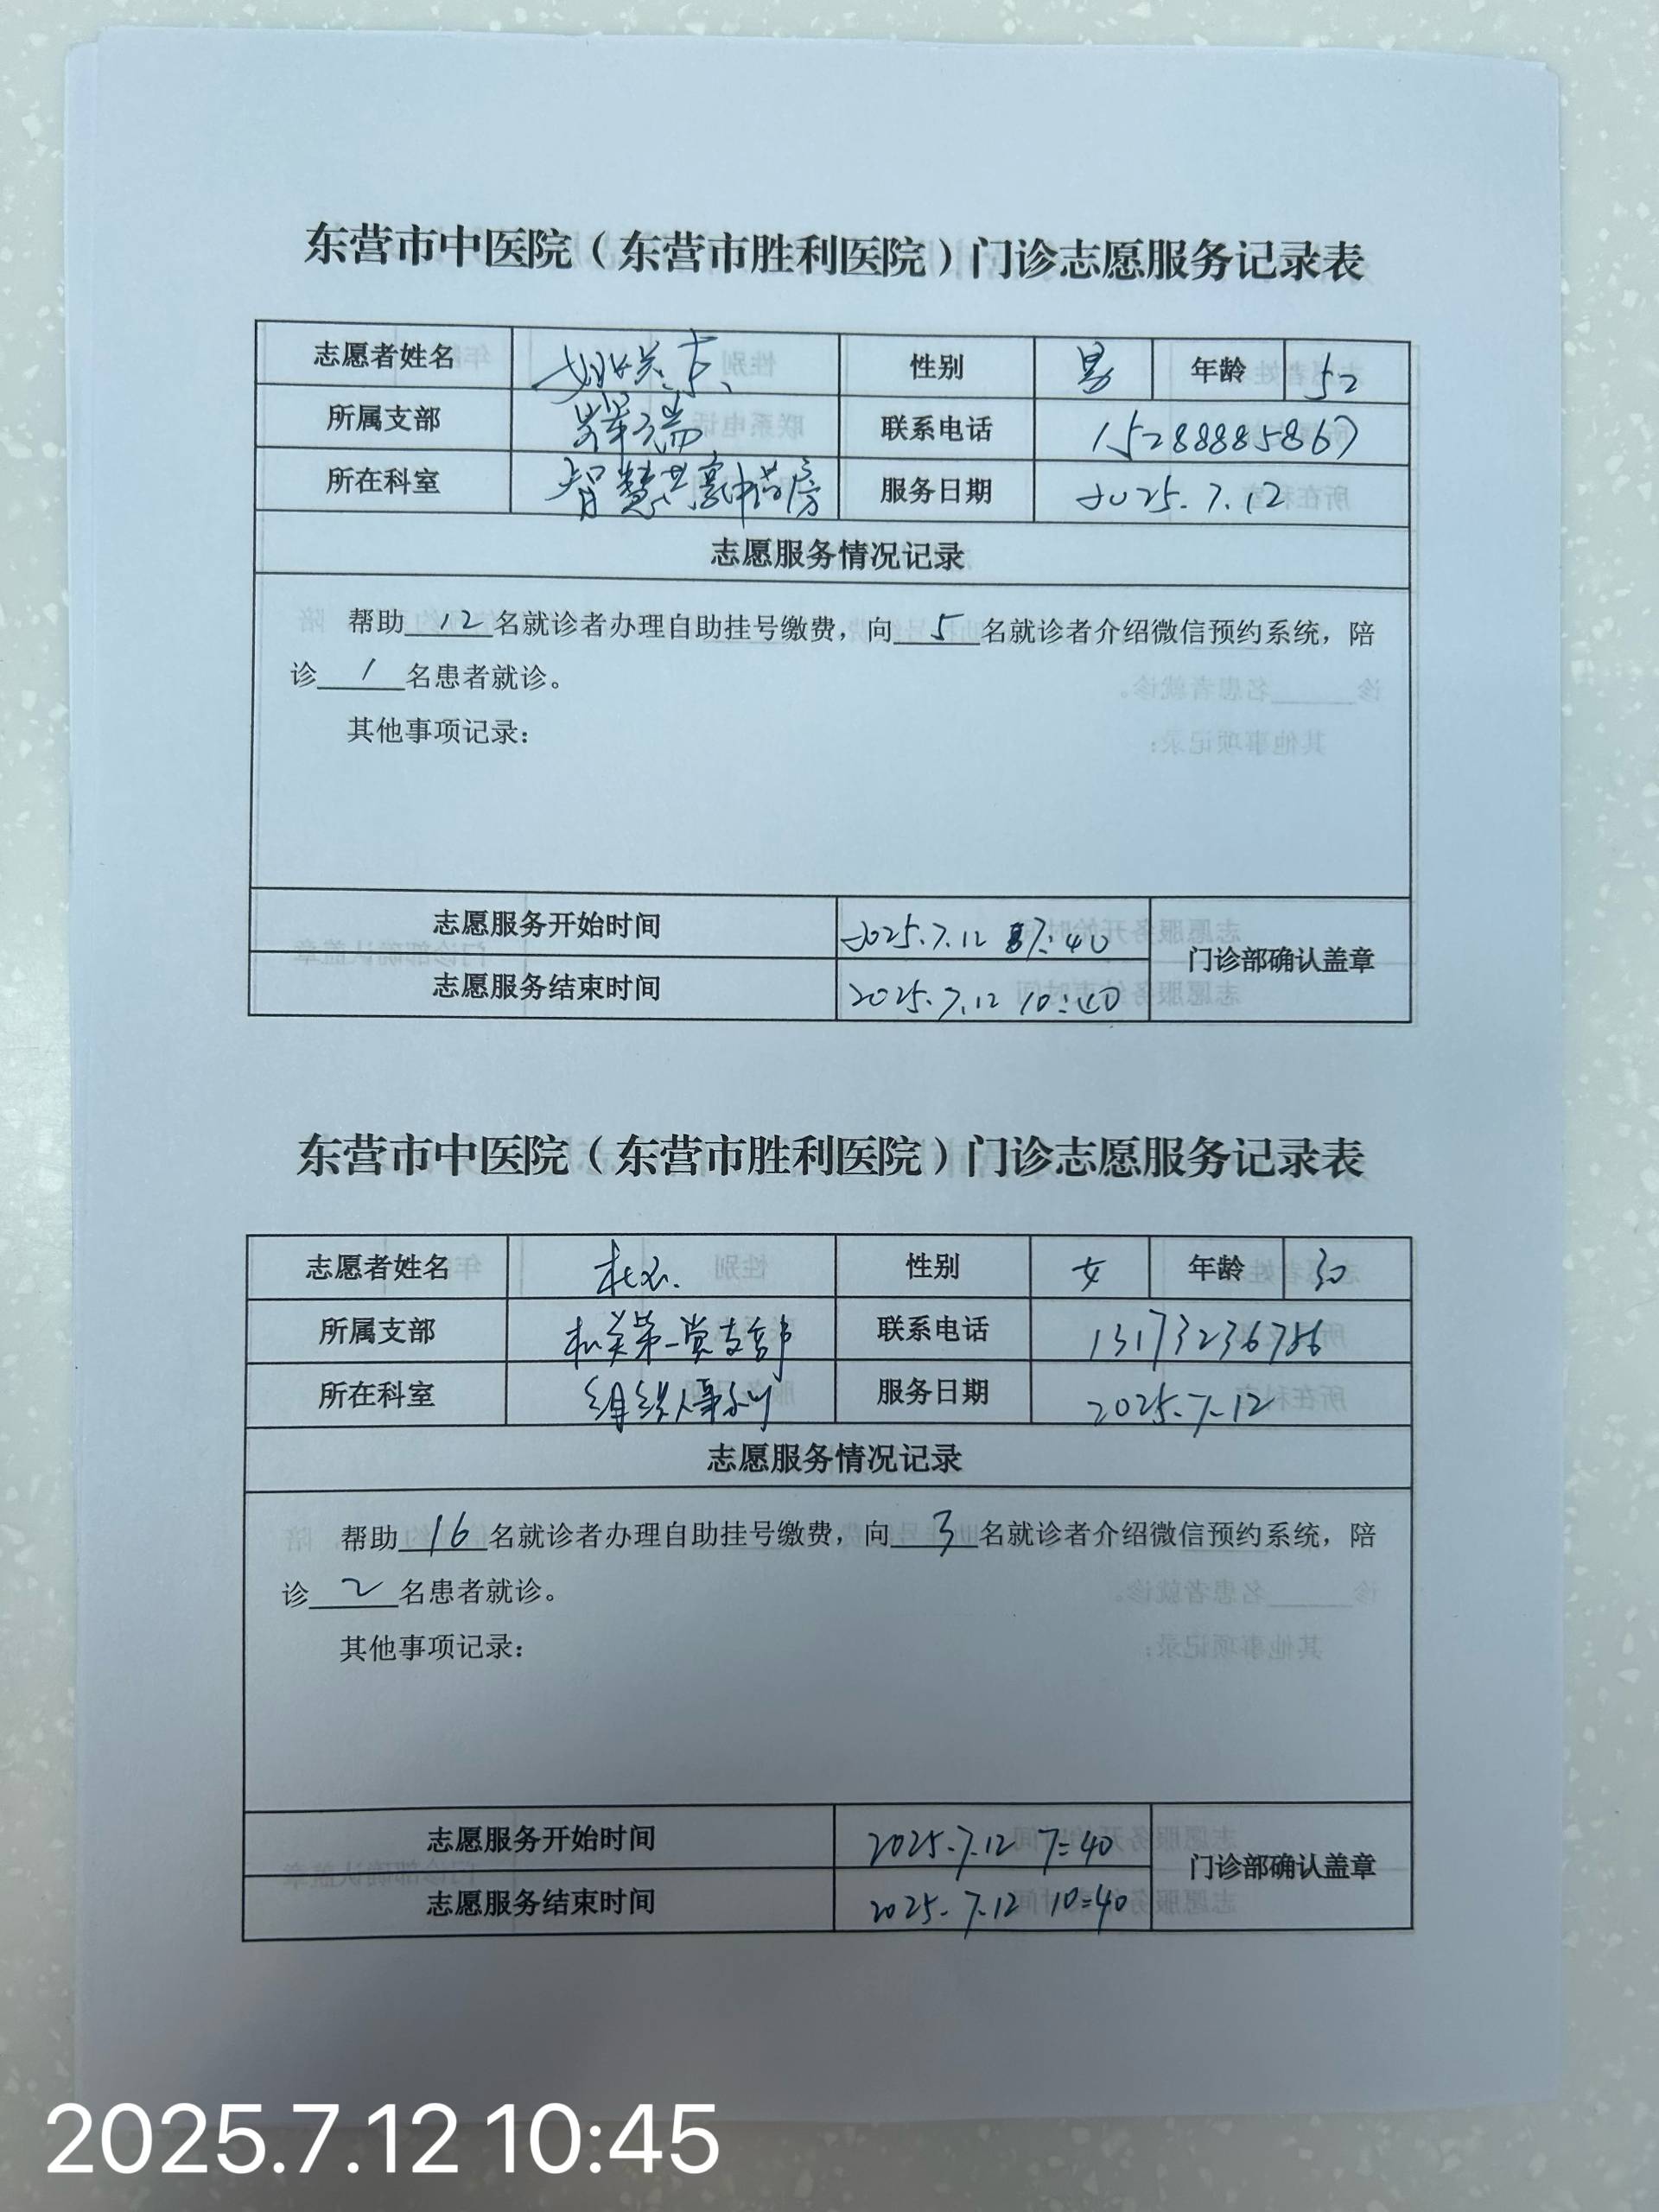 东营市中医院（东营市胜利医院）门诊志愿服务记录表
志愿者姓名 性别 男 年龄 52
所属支部 联系电话 15288885867
所在科室 智慧共享中药房 服务日期 2025.7.12
志愿服务情况记录
帮助 12 名就诊者办理自助挂号缴费，向 5 名就诊者介绍微信预约系统，陪
诊 1 名患者就诊。
其他事项记录：
志愿服务开始时间 2025.7.12 7:40
门诊部确认盖章
志愿服务结束时间 2025.7.12 10:40
东营市中医院（东营市胜利医院）门诊志愿服务记录表
志愿者姓名 性别 女 年龄 30
所属支部 机关第一党支部 联系电话 13173236786
所在科室 组织人事科 服务日期 2025.7.12
志愿服务情况记录
帮助 16 名就诊者办理自助挂号缴费，向 3 名就诊者介绍微信预约系统，陪
诊 2 名患者就诊。
其他事项记录：
志愿服务开始时间 2025.7.12 7:40
门诊部确认盖章
志愿服务结束时间 2025.7.12 10:40
2025.7.12 10:45